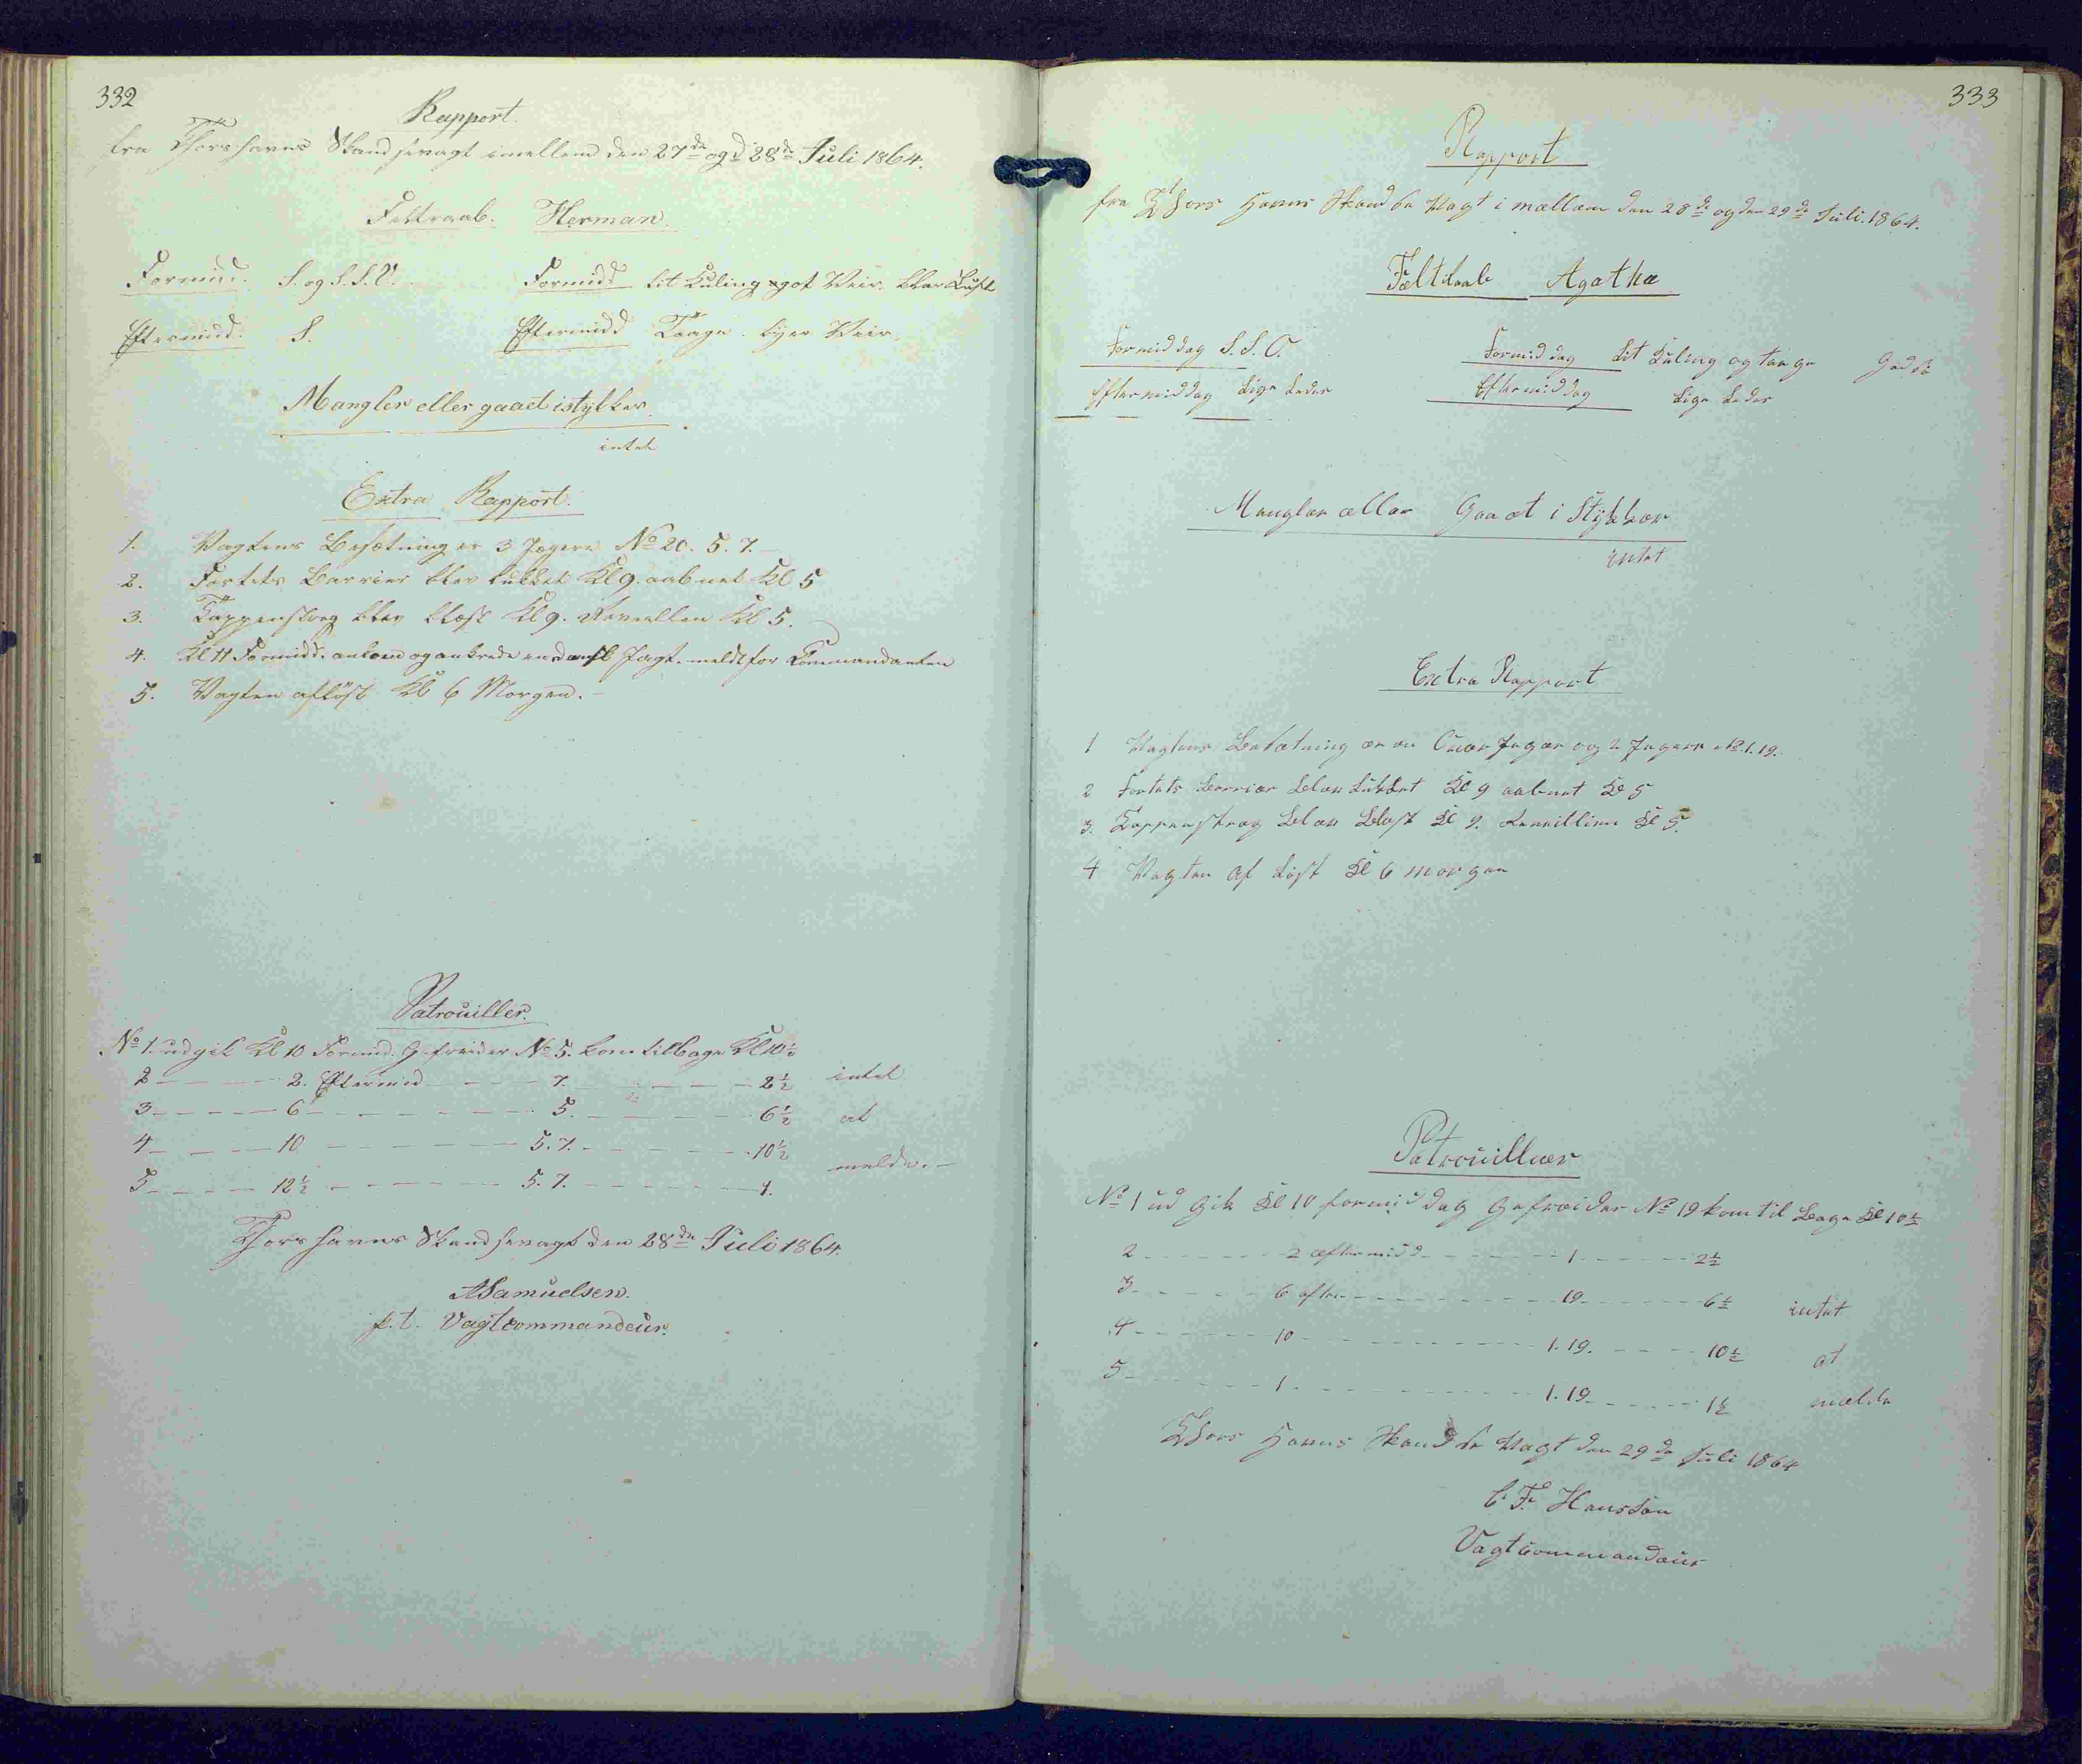 332
Rapport.
fra Thorshavns Skandsevagt imellem den 27de og d 28de Juli 1864.
Feltraab. Herman.
Formid. S. og S.S.V. Formidd lit Kuling & got Veir. klar Luft
Eftermid. S. Eftermidd Taage. Veir.
Mangler eller gaaet istykker.
intet
Extra Rapport.
1. Vagtens Besætning er 3 Jægere No 20. 5. 7.
2. Fortets Barrier blev lukket Kl 9. aabnet Kl 5
3. Tappenstreg blev blæst Kl 9. Reveillen Kl 5.
4. Kl 11 Formidd. ankom og ankrede en dansk Jagt. meldt for Kommandanten
5. Vagten afløst Kl 6 Morgen. -
Patrouiller.
No 1. udgik Kl 10 Formid. Gefreider No 5. kom tilbage Kl 10½
2 - - - - 2. Eftermid - - - 7. - - - - 2½ intet
3 - - - - 6 - - - - - - 5. - - - - 6½ at
4 - - - - 10 - - - - - 5. 7. - - - - 10½
melde. -
5 - - - - 12½ - - - - - 5. 7. - - - - 1.
Thorshavns Skandsevagt den 28de Juli 1864.
ASamuelsen.
p.t. Vagtcommandeur.
333
Rapport
fra Thors Havns Skandse Vagt i mællem den 28de og den 29de Juli. 1864.
Fæltraab Agatha
Formiddag S.S.O. Formiddag Lit Kuling og taage
Eftermiddag Lige Leder Eftermiddag Lige Leder
Mangler æller Gaaet i Stykker
intet
Extra Rapport
1 Vagtens Besætning er en Jæger og 2 Jægere No 1. 19.
2 Fortets Barrier blev Lukket Kl 9 aabnet Kl 5
3. Tappenstreg blev blæst Kl 9. Kl 5.
4 Vagten af Løst Kl 6 morgen
Patrouillwer
No 1 ud gik Kl 10 formiddag Gefreider No 19 kom til Bage Kl 10½
2 - - - - 2 æftermidd - - - - 1 - - - - 2½
3 - - - - 6 æfter - - - - 19 - - - - 6½ intet
4 - - - - 10 - - - - 1. 19. - - - - 10½ at
5 - - - - 1. - - - - 1. 19 - - - - 1½ mælde
Thors Havns Skandse Vagt den 29de Juli 1864
C. F. Hansen
Vagtcommandeur